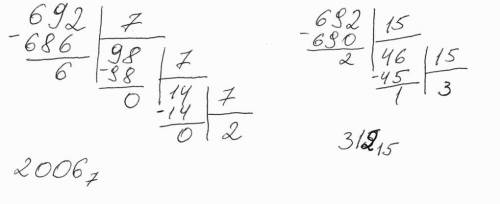 692 | 7
-686 | 98 | 7
6 | -98 | 14 | 7
0 | -14 | 2
0
2006₇
692 | 15
-690 | 46 | 15
2 | -45 | 3
1
312₁₅